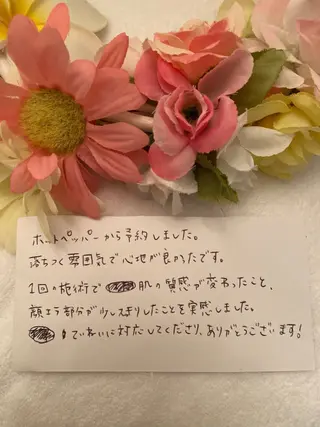 ホットペッパーから予約しました。
落ちつく雰囲気で心地が良かったです。
1回の施術で 肌の質感が変わったこと、
顔エラ部分が少しスッキリしたことを実感しました。
ていねいに対応してくださり、ありがとうございます!